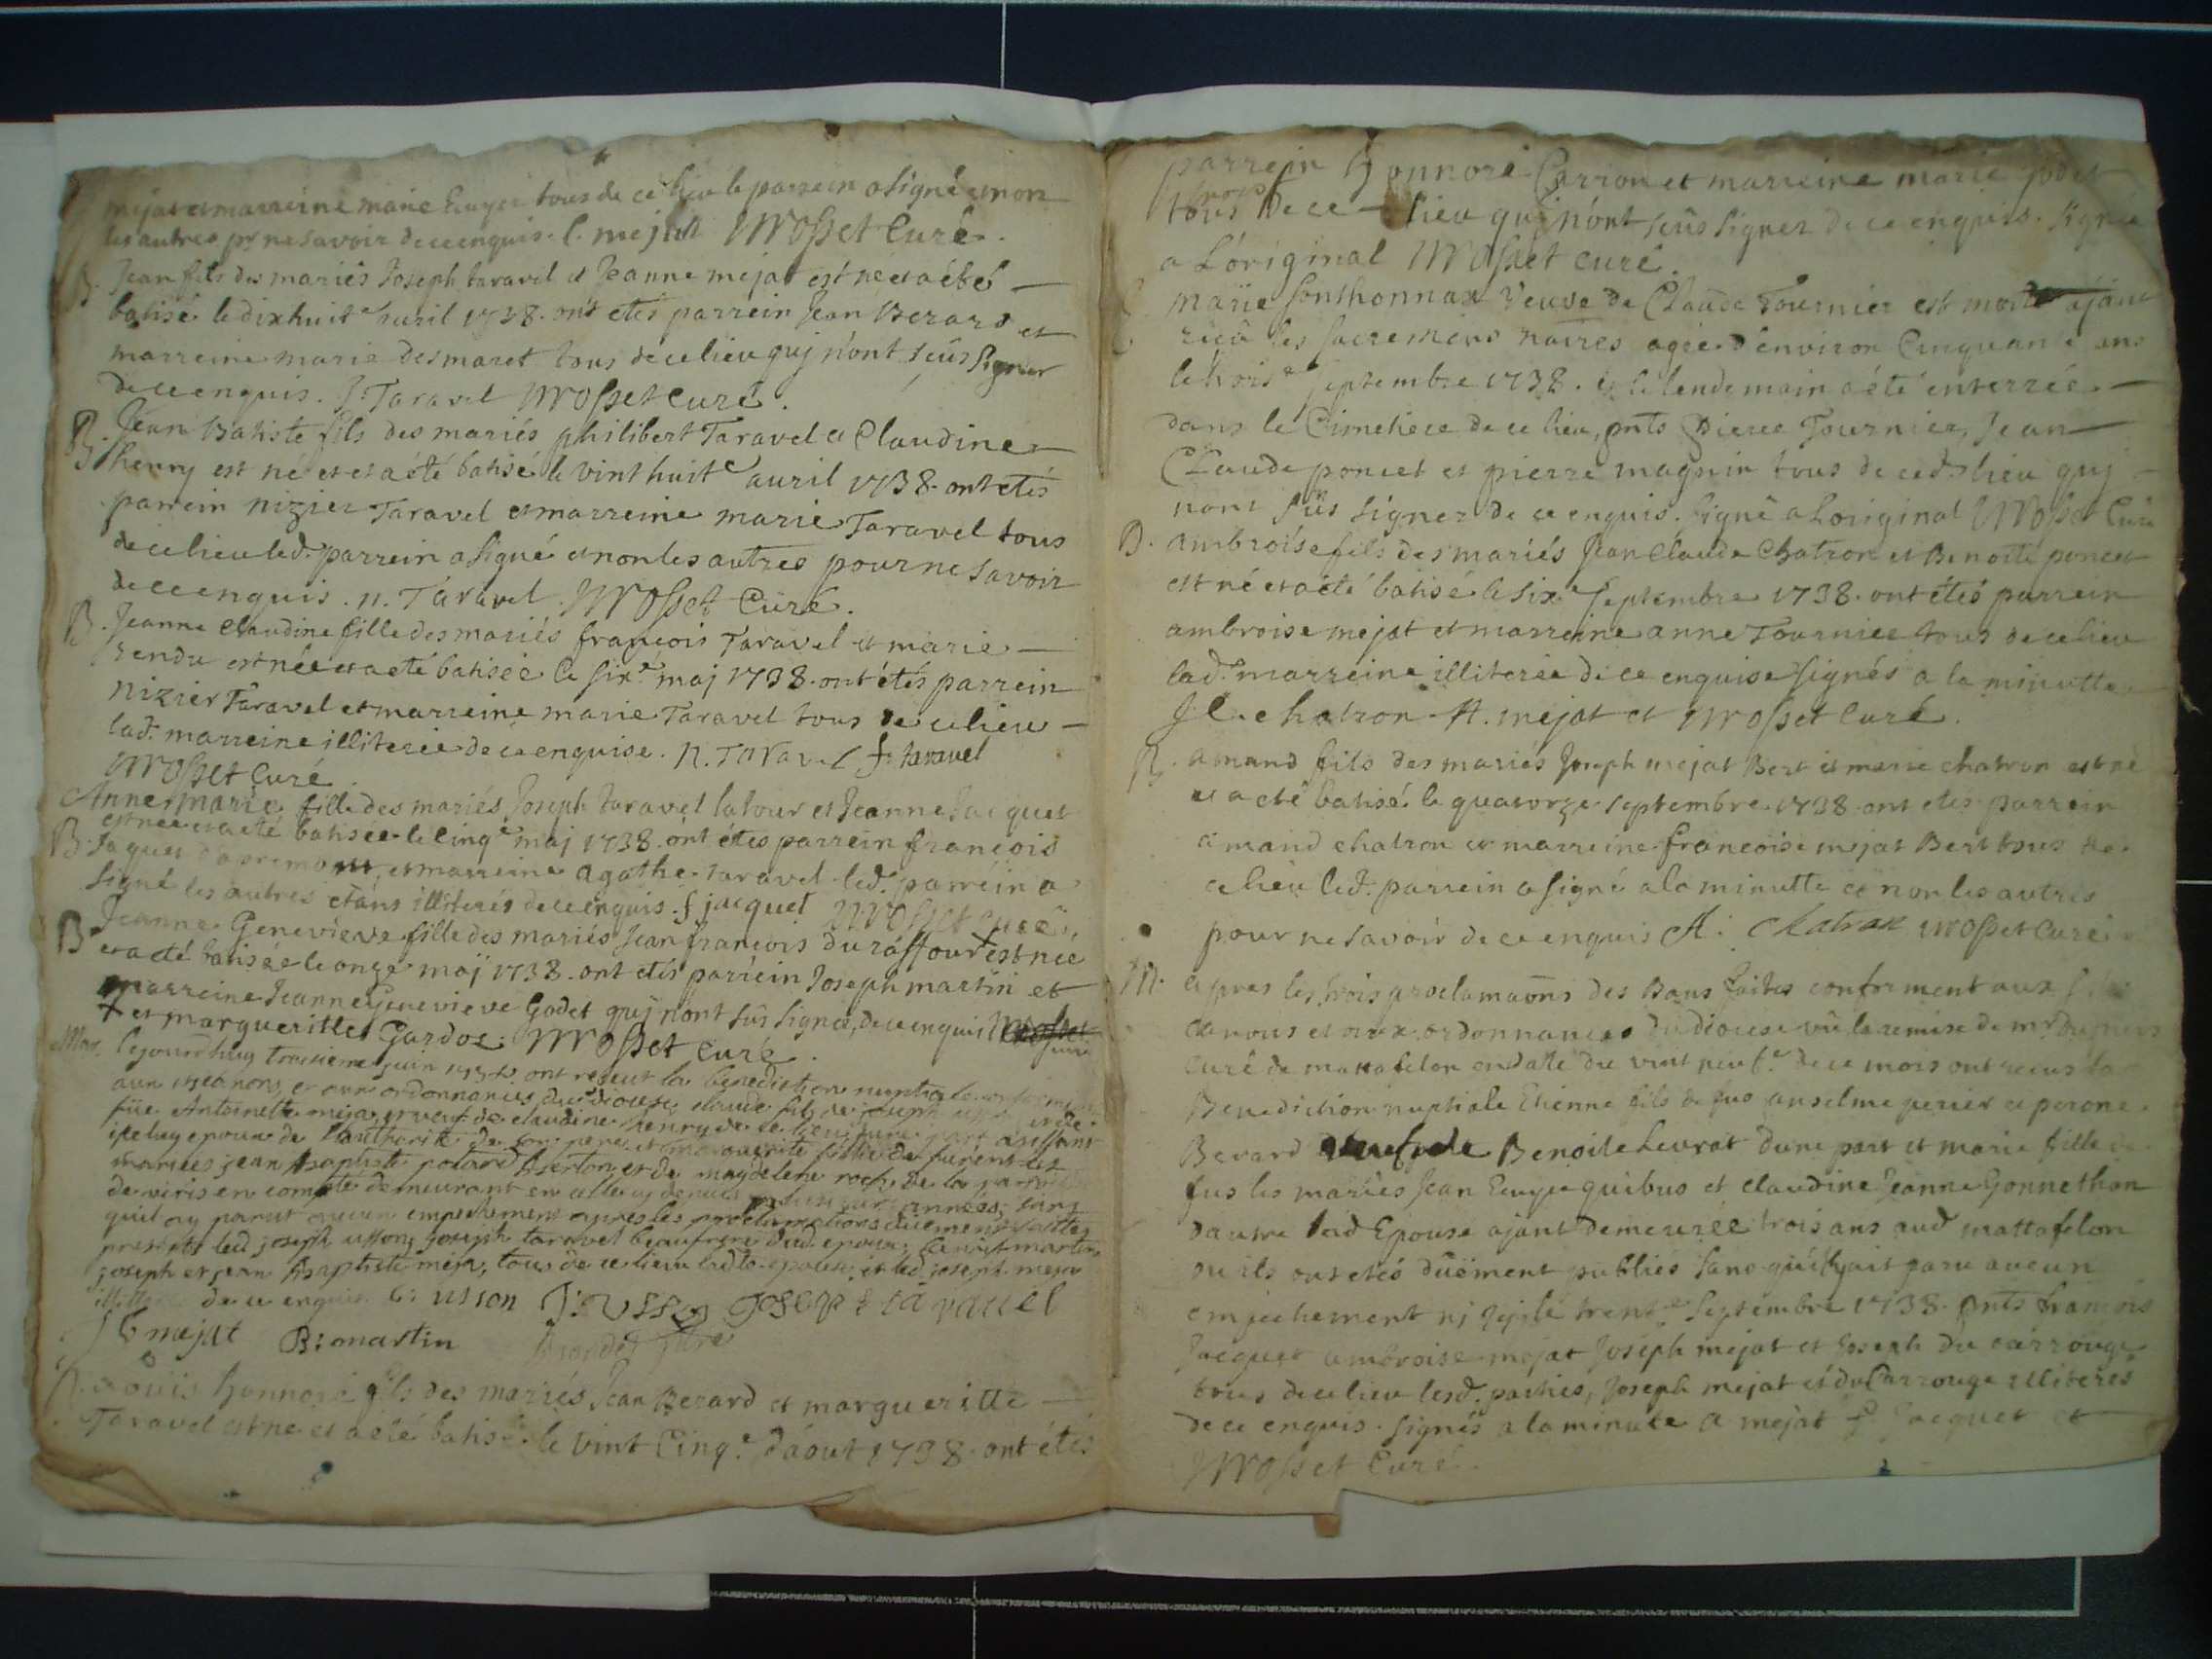 mejat et marreine marie tous de ce lieu le parrein a signé et non
les autres pr ne savoir de ce enquis. C. mejat Mosset Curé.
B. Jean fils des mariés Joseph taravel et Jeanne mejat est né et a été
batisé le dixhuite avril 1738. ont etés parrein Jean Berard et
marreine marie desmaret tous de ce lieu quj n'ont seüs signer
de ce enquis. J. Taravel Mosset curé.
B. Jean Batiste fils des mariés philibert Taravel et Claudine
henry est né et et a été batisé le vint huite auril 1738. ont etés
parrein nizier Taravel et marreine marie Taravel tous
de ce lieu led. parrein a signé et non les autres pour ne savoir
de ce enquis. n. Taravel. Mosset Curé.
B. Jeanne Claudine fille des mariés françois Taravel et marie
rendu est née et a eté batisée le sixe. maj 1738. ont étés parrein
Nizier Taravel et marreine marie Taravel tous de ce lieu
lad. marreine illiterée de ce enquise. N. TaRavel f. taravel
Mosset Curé
Anne marie fille des mariés Joseph taravel latour et Jeanne Jacquet
B. est née et a eté batisée le cinqe maj 1738. ont étés parrein françois
Jaquet et marreine agathe taravel led. parrein a
signé les autres étans illiterés de ce enquis. f jacquet Mosset curé.
B Jeanne Genevieve fille des mariés Jean françois Duraffour est née
et a eté batisée le onze maÿ 1738. ont etés parrein Joseph martin et
marreine Jeanne Genevieve Godet quj n'ont sûs signer, de ce enquis
+ et margueritte Gardos. Mosset curé.
Mar. cejourdhuy troisieme juin ont receut la benediction nuptiale
aux ordonnances du diocese claude fils de joseph
füe Antoinette meja et veuf de claudine henry de ce lieu
jcelluy epoux de l'authorité de son pere et marguerite fille de furent les
mariées jean baptiste et de magdelene roch de la
de viris en comte demeurant en celle cy depuis années, sans
quil ay parut aucun empechement apres les proclamations düement faittes
presents led joseph usson, joseph taravel beaufrere dud epoux, benoit martin,
joseph et jean baptiste meja, tous de ce lieu ladte epouse, et led joseph meja
de ce enquis C: usson J: Usson Josept taravel
J b mejat B: martin
B. Loüis honnoré fils des mariés Jean Berard et margueritte
Taravel est ne et a eté batisé le vint cinqe. d'aout 1738. ont étés
parrein honnoré Carrion et marreine marie godet
tous de ce lieu quj n'ont seüs signer de ce enquis. signée
a L'original Mosset curé.
Marie Sonthonnax veuve de Claude Tournier est morte ajant
reçû les sacremens agée d'environ Cinquante ans
le troise septembre 1738. et le lendemain a été enterrée
dans le Cimetiere de ce lieu, pnts Pierre Tournier, Jean
Claude poncet et pierre magnin tous de ced. lieu quj
n'ont süs signer de ce enquis. signé a L'original Mosset Curé
B. ambroise fils des mariés Jean Claude Chatron et Benoite poncet
est né et a eté batisé le sixe septembre 1738. ont étés parrein
ambroise mejat et marreine anne Tournier tous de ce lieu
lad. marreine illiterée de ce enquise signés a la minutte
J C. chatron A. mejat et Mosset Curé.
B. amand fils des mariés Joseph mejat Bert et marie chatron est né
et a eté batisé le quatorze septembre 1738. ont etés parrein
amand chatron et marreine françoise mejat Bert tous de
ce lieu led. parrein a signé a la minutte et non les autres
pour ne savoir de ce enquis A. Chatron Mosset Curé
M. apres les trois proclamaöns des Bans faites conforment aux
canons et aux ordonnances du diocese vû la remise de mr
curé de mattafelon en date du vint neufe. de ce mois ont receus la
Benediction nuptiale Etienne fils de fus anselme perier et perone
Bevard veuf de Benoite Levrat d'une part et marie fille de
fus les mariés Jean quibus et claudine Jeanne Gonnethon
d'autre lad Epouse ajant demeurée trois ans aud mattafelon
ou ils ont etés düement publiés sans qu'il ait paru aucun
empechement nj icj le trente septembre 1738. pnts françois
Jacquet ambroise mejat Joseph mejat et Joseph du carrouge
tous de ce lieu lesd. parties, Joseph mejat et du Carrouge illiterés
de ce enquis. signés a la minute a mejat f Jacquet et
Mosset Curé.